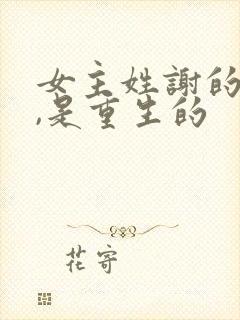 女主姓謝的
,是重生的
花寄